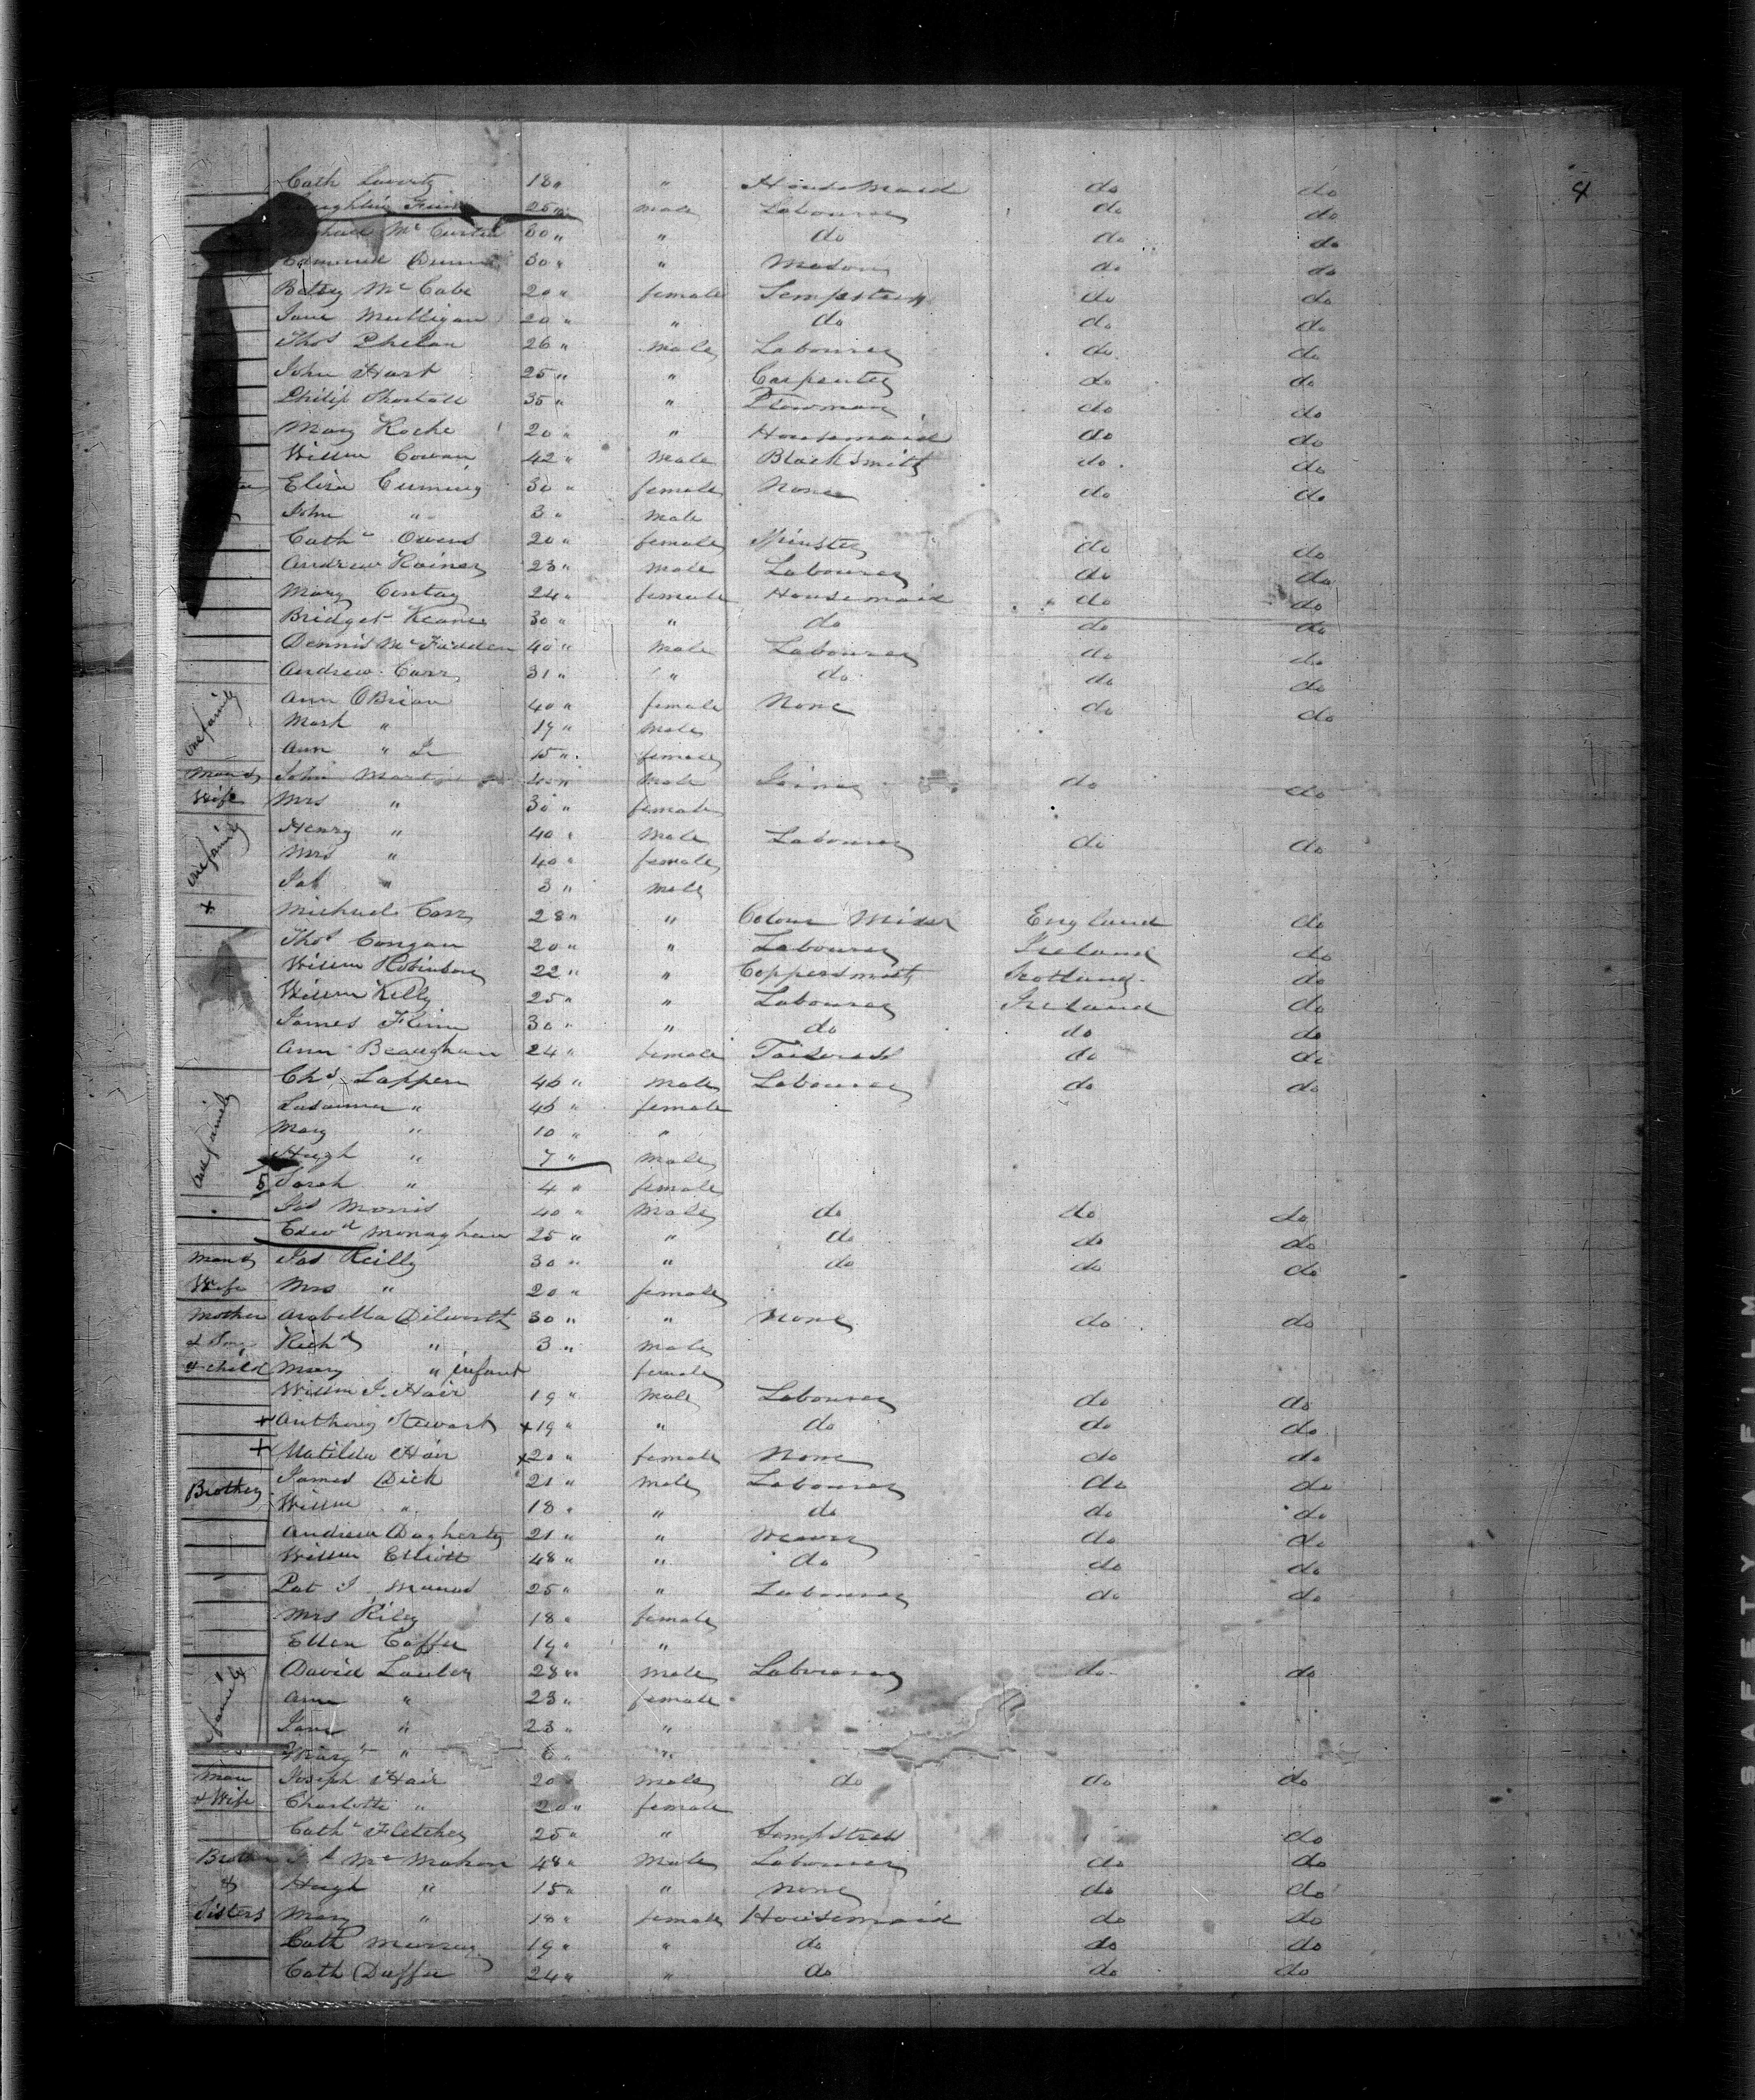 4
Cath 18 " " Housemaid do do
25 " male Labourer do do
Michael Mc 60 " " do do do
Edmund 30 " " Mason do do
Betsy Mc Cabe 20 " female Sempstress do do
Jane Mulligan 20 " " do do do
Thos Phelan 26 " male Labourer do do
John Hart 25 " " Carpenter do do
Philip Shortall 35 " " Plowman do do
Mary Roche 20 " " Housemaid do do
Willm Cowan 42 " male Blacksmith do do
Eliza Cuming 30 " female None do do
John " 3 " male
Cathe Owens 20 " female Spinster do do
Andrew 23 " male Labourer do do
Mary 24 " female Housemaid do do
Bridget Keane 30 " " do do do
Dennis McFadden 40 " male Labourer do do
Andrew Carr 31 " " do do do
one family Ann OBrian 40 " female None do do
Mark " 19 " male
Ann " Jr 15 " female
Man & John Martin " male Joiner do do
Wife Mrs " 30 " female
one family Henry " 40 " male Labourer do do
Mrs " 40 " female
" 3 " male
+ Michael Carr 28 " " Colour Mixer England do
Thos Congan 20 " " Labourer Ireland do
Willm Robinson 22 " " Coppersmith Scotland do
Willm Kelly 25 " " Labourer Ireland do
James Flinn 30 " " do do do
Ann Beaughan 24 " female Tailoress do do
one family Chs Lappen 45 " male Labourer do do
Susanna " 45 " female
Mary " 10 " "
Hugh " 7 " male
5 Sarah " 4 " female
Jas Morris 40 " male do do do
Edwd Monaghan 25 " " do do do
Man & Jas Reilly 30 " " do do do
Wife Mrs " 20 " female
Mother Arabella Dilworth 30 " " None do do
& Son Richd " 3 " male
& child Mary " infant female
Willm J. Hair 19 " male Labourer do do
+ Anthony Stewart +19 " " do do do
+ Matilda Hair +20 " female None do do
Brother James Dick 21 " male Labourer do do
Willm " 18 " " do do do
Andrew Dogherty 21 " " Weaver do do
Willm Elliott 48 " " do do do
Pat J 25 " " Labourer do do
Mrs Riley 18 " female
Ellen 19 " "
family David 28 " male Labourer do do
Ann " 23 " female
Jane " 23 " "
Margt " 6 " "
Man Joseph Hair 20 " male do do do
& Wife Charlotte " 20 " female
Cathe Fletcher 25 " " Sempstress do
Brother Mc Mahon 48 " male Labourer do do
& Hugh " 15 " " none do do
Sisters Mary " 18 " female Housemaid do do
Cath Murray 19 " " do do do
Cath Duffee 24 " " do do do
SAFETY A FILM